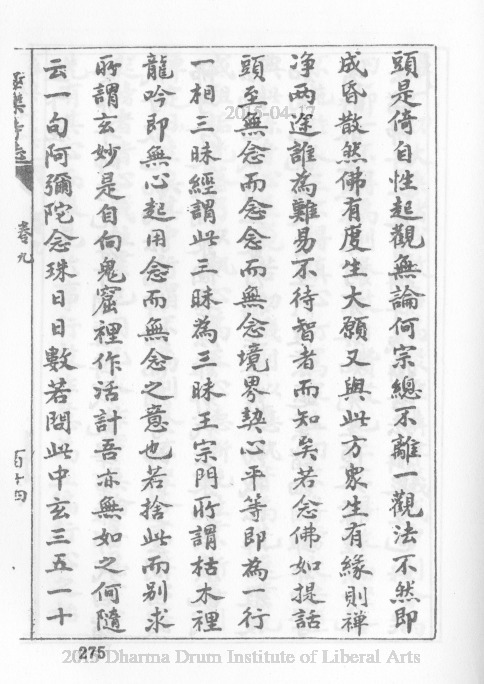 頭是倚自性起觀無論何宗總不離一觀法不然即
成昏散然佛有度生大願又與此方眾生有緣則禅
净兩途誰為難易不待智者而知矣若念佛如提話
頭至無念而念念而無念境界契心平等即為一行
一相三昧經謂此三昧為三昧王宗門所謂枯木裡
龍吟即無心起用念而無念之意也若捨此而別求
所謂玄妙是自向鬼窟裡作活計吾亦無如之何隨
云一句阿彌陀念珠日日數若問此中玄三五一十
極樂寺志
卷九
百十四
2015-04-17
275
2015 Dharma Drum Institute of Liberal Arts